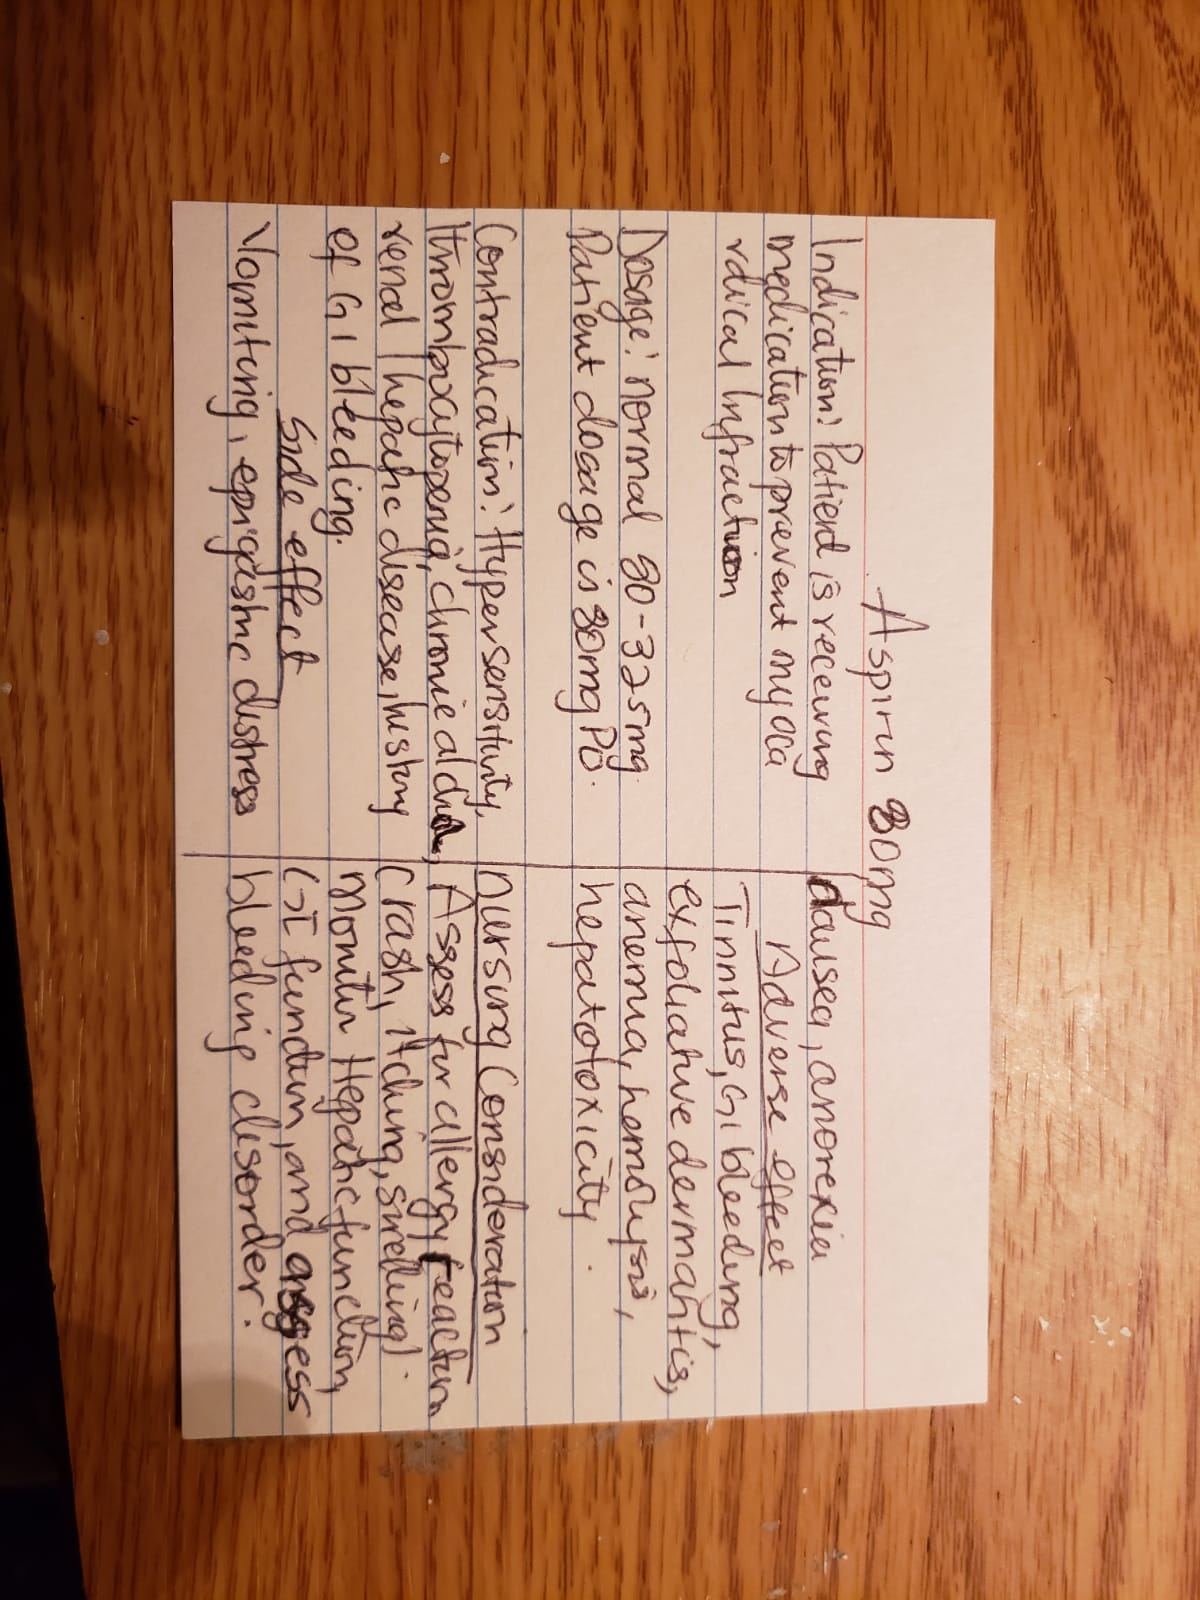 Aspirin 80mg
Indication: Patient is receiving
medication to prevent myoca
rdical Infraction
Dosage: normal 80-325mg.
Patient dosage is 80mg PO.
Contradication: Hypersensitivity,
thrombocytopenia, chronic
renal / hepatic disease, history
of GI bleeding.
Side effect
Vomiting, epigastric distress
nausea, anorexia
Adverse effect
Tinnitus, GI bleeding,
exfoliative dermatitis,
anemia, hemolysis,
hepatotoxicity.
nursing Consideration
Assess for allergy reaction
(rash, itching, swelling).
Monitor Hepatic function,
GI function, and assess
bleeding disorder.